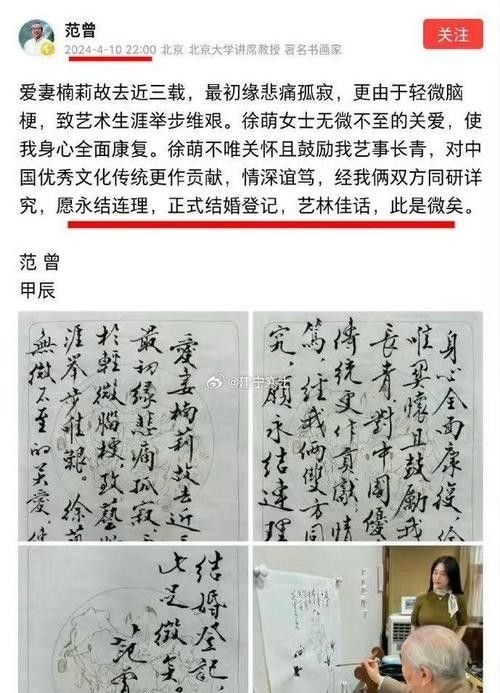 范曾
关注
2024-4-10 22:00 北京 北京大学讲席教授 著名书画家
爱妻楠莉故去近三载，最初缘悲痛孤寂，更由于轻微脑
梗，致艺术生涯举步维艰。徐萌女士无微不至的关爱，使
我身心全面康复。徐萌不唯关怀且鼓励我艺事长青，对中
国优秀文化传统更作贡献，情深谊笃，经我俩双方同研详
究，愿永结连理，正式结婚登记，艺林佳话，此是微矣。
范 曾
甲辰
愛妻楠莉故去近三
最初缘悲痛孤寂
於輕微腦梗致藝
涯举步维艱。徐萌
無微不至的关爱使
身心全面康復徐
唯関懷且鼓勵我
長青對中國優
傳統更作貢獻情
篤經我俩雙方同
究願永结連理
@江宁寨士
结婚登记
此是微矣
范曾